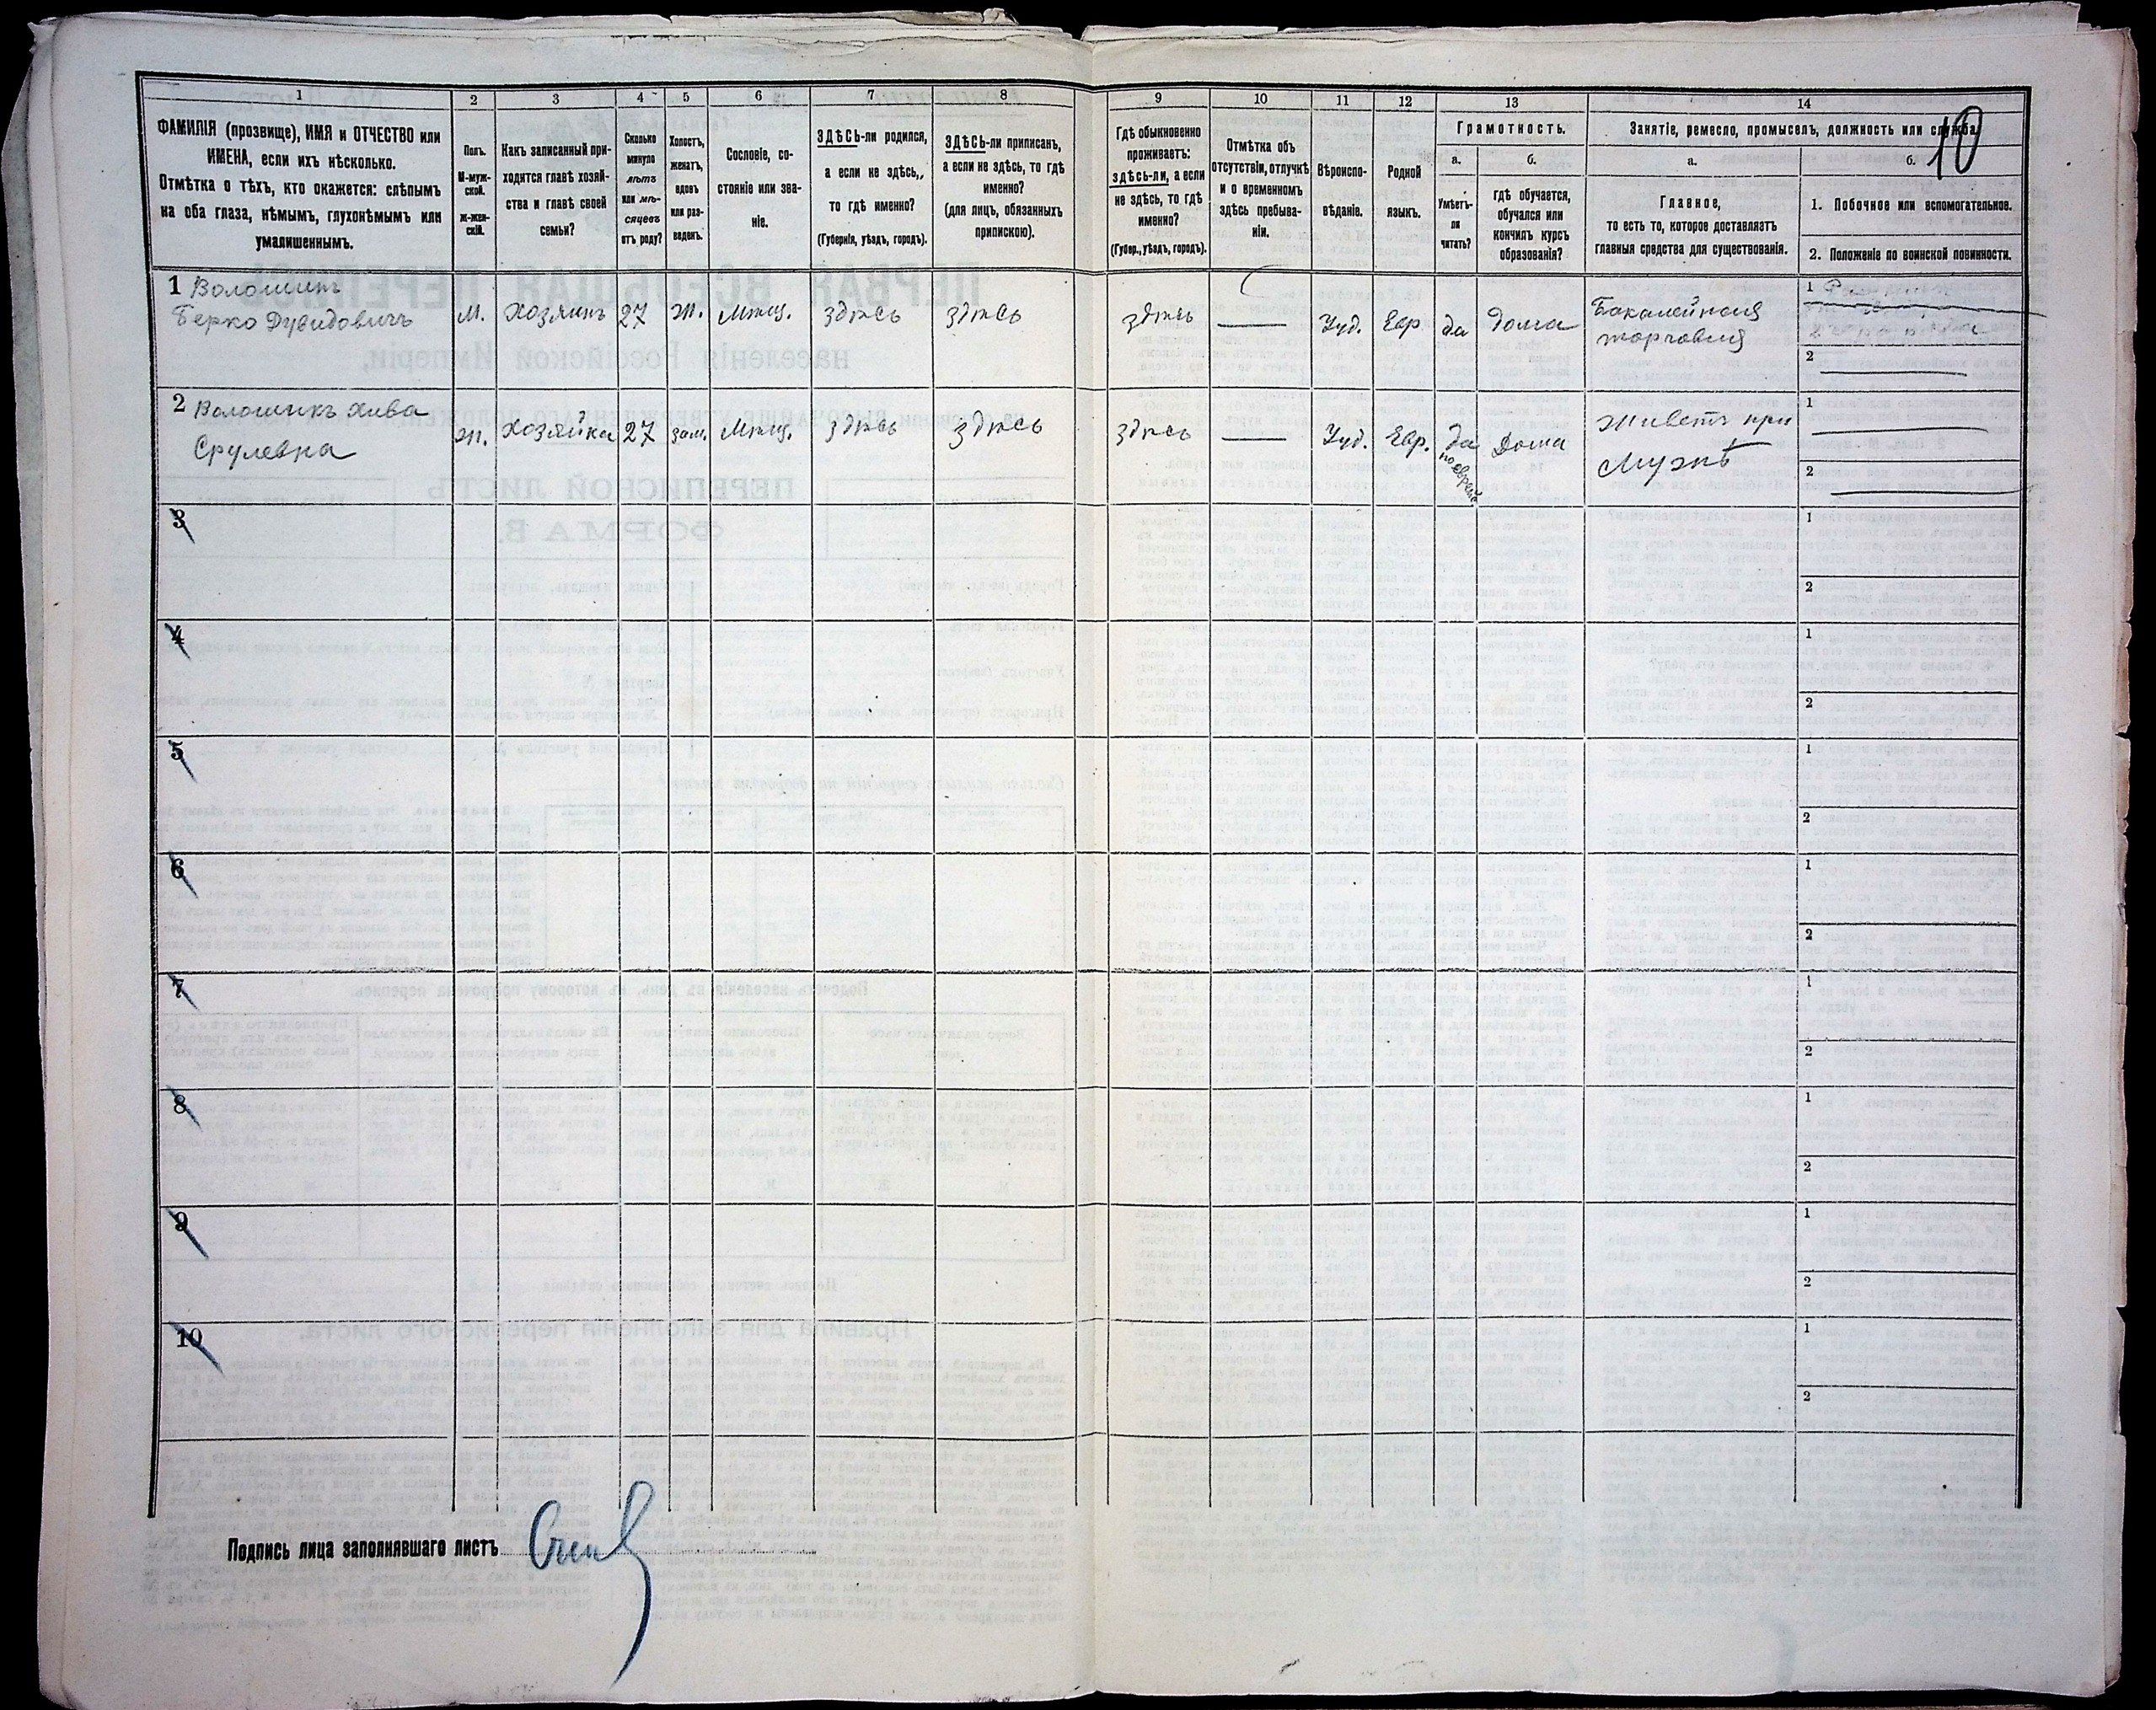 1
2
3
4
5
6
7
8
9
10
11
12
13
14
10
ФАМИЛІЯ (прозвище), ИМЯ и ОТЧЕСТВО или
ИМЕНА, если ихъ нѣсколько.
Отмѣтка о тѣхъ, кто окажется: слѣпымъ
на оба глаза, нѣмымъ, глухонѣмымъ или
умалишеннымъ.
Полъ.
М-муж-
ской.
ж-жен-
скій.
Какъ записанный при-
ходится главѣ хозяй-
ства и главѣ своей
семьи?
Сколько
минуло
лѣтъ
или мѣ-
сяцевъ
отъ роду?
Холостъ,
женатъ,
вдовъ
или раз-
веденъ.
Сословіе, со-
стояніе или зва-
ніе.
ЗДѢСЬ-ли родился,
а если не здѣсь,
то гдѣ именно?
(Губернія, уѣздъ, городъ).
ЗДѢСЬ-ли приписан,
а если не здѣсь, то гдѣ
именно?
(для лицъ, обязанныхъ
припискою).
Гдѣ обыкновенно
проживаетъ:
здѣсь-ли, а если
не здѣсь, то гдѣ
именно?
(Губер., уѣздъ, городъ).
Отмѣтка объ
отсутствіи, отлучкѣ
и о временномъ
здѣсь пребыва-
ніи.
Вѣроиспо-
вѣданіе.
Родной
языкъ.
Грамотность.
а.
б.
Умѣетъ-
ли
читать?
гдѣ обучается,
обучался или
кончилъ курсъ
образованія?
Занятіе, ремесло, промыселъ, должность или служба.
а.
б.
Главное,
то есть то, которое доставляетъ
главныя средства для существованія.
1. Побочное или вспомогательное.
2. Положеніе по воинской повинности.
1 Волошинъ
Берко Дувидовичъ
М. Хозяинъ 27 Ж. Мѣщ. здѣсь здѣсь здѣсь — Іуд. Евр да Дома
Бакалейная
торговля
1
2
2 Волошинъ Хива
Срулевна
Ж. Хозяйка 27 зам. Мѣщ. здѣсь здѣсь здѣсь — Іуд. Евр. да Дома
по еврей
Живетъ при
мужѣ
1
2
3
1
2
4
1
2
5
1
2
6
1
2
7
1
2
8
1
2
9
1
2
10
1
2
Подпись лица заполнявшаго листъ